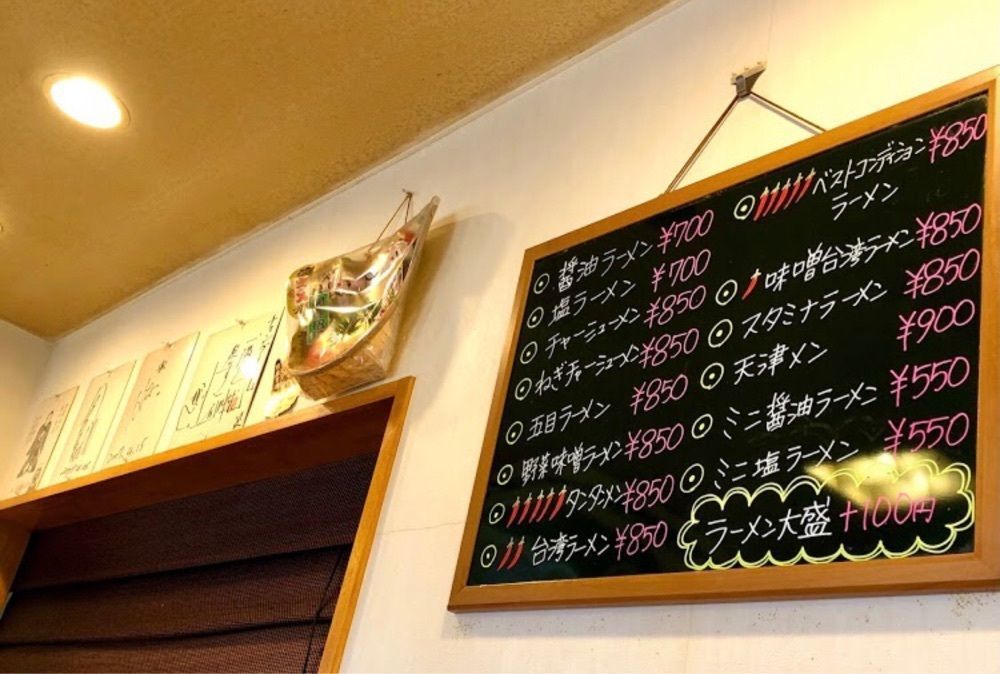 醤油ラーメン ¥700
塩ラーメン ¥700
チャーシューメン ¥850
ねぎチャーシューメン ¥850
五目ラーメン ¥850
野菜味噌ラーメン ¥850
タンタンメン ¥850
台湾ラーメン ¥850
ベストコンディション ¥850
ラーメン
味噌台湾ラーメン ¥850
スタミナラーメン ¥850
天津メン ¥900
ミニ醤油ラーメン ¥550
ミニ塩ラーメン ¥550
ラーメン大盛 +100円